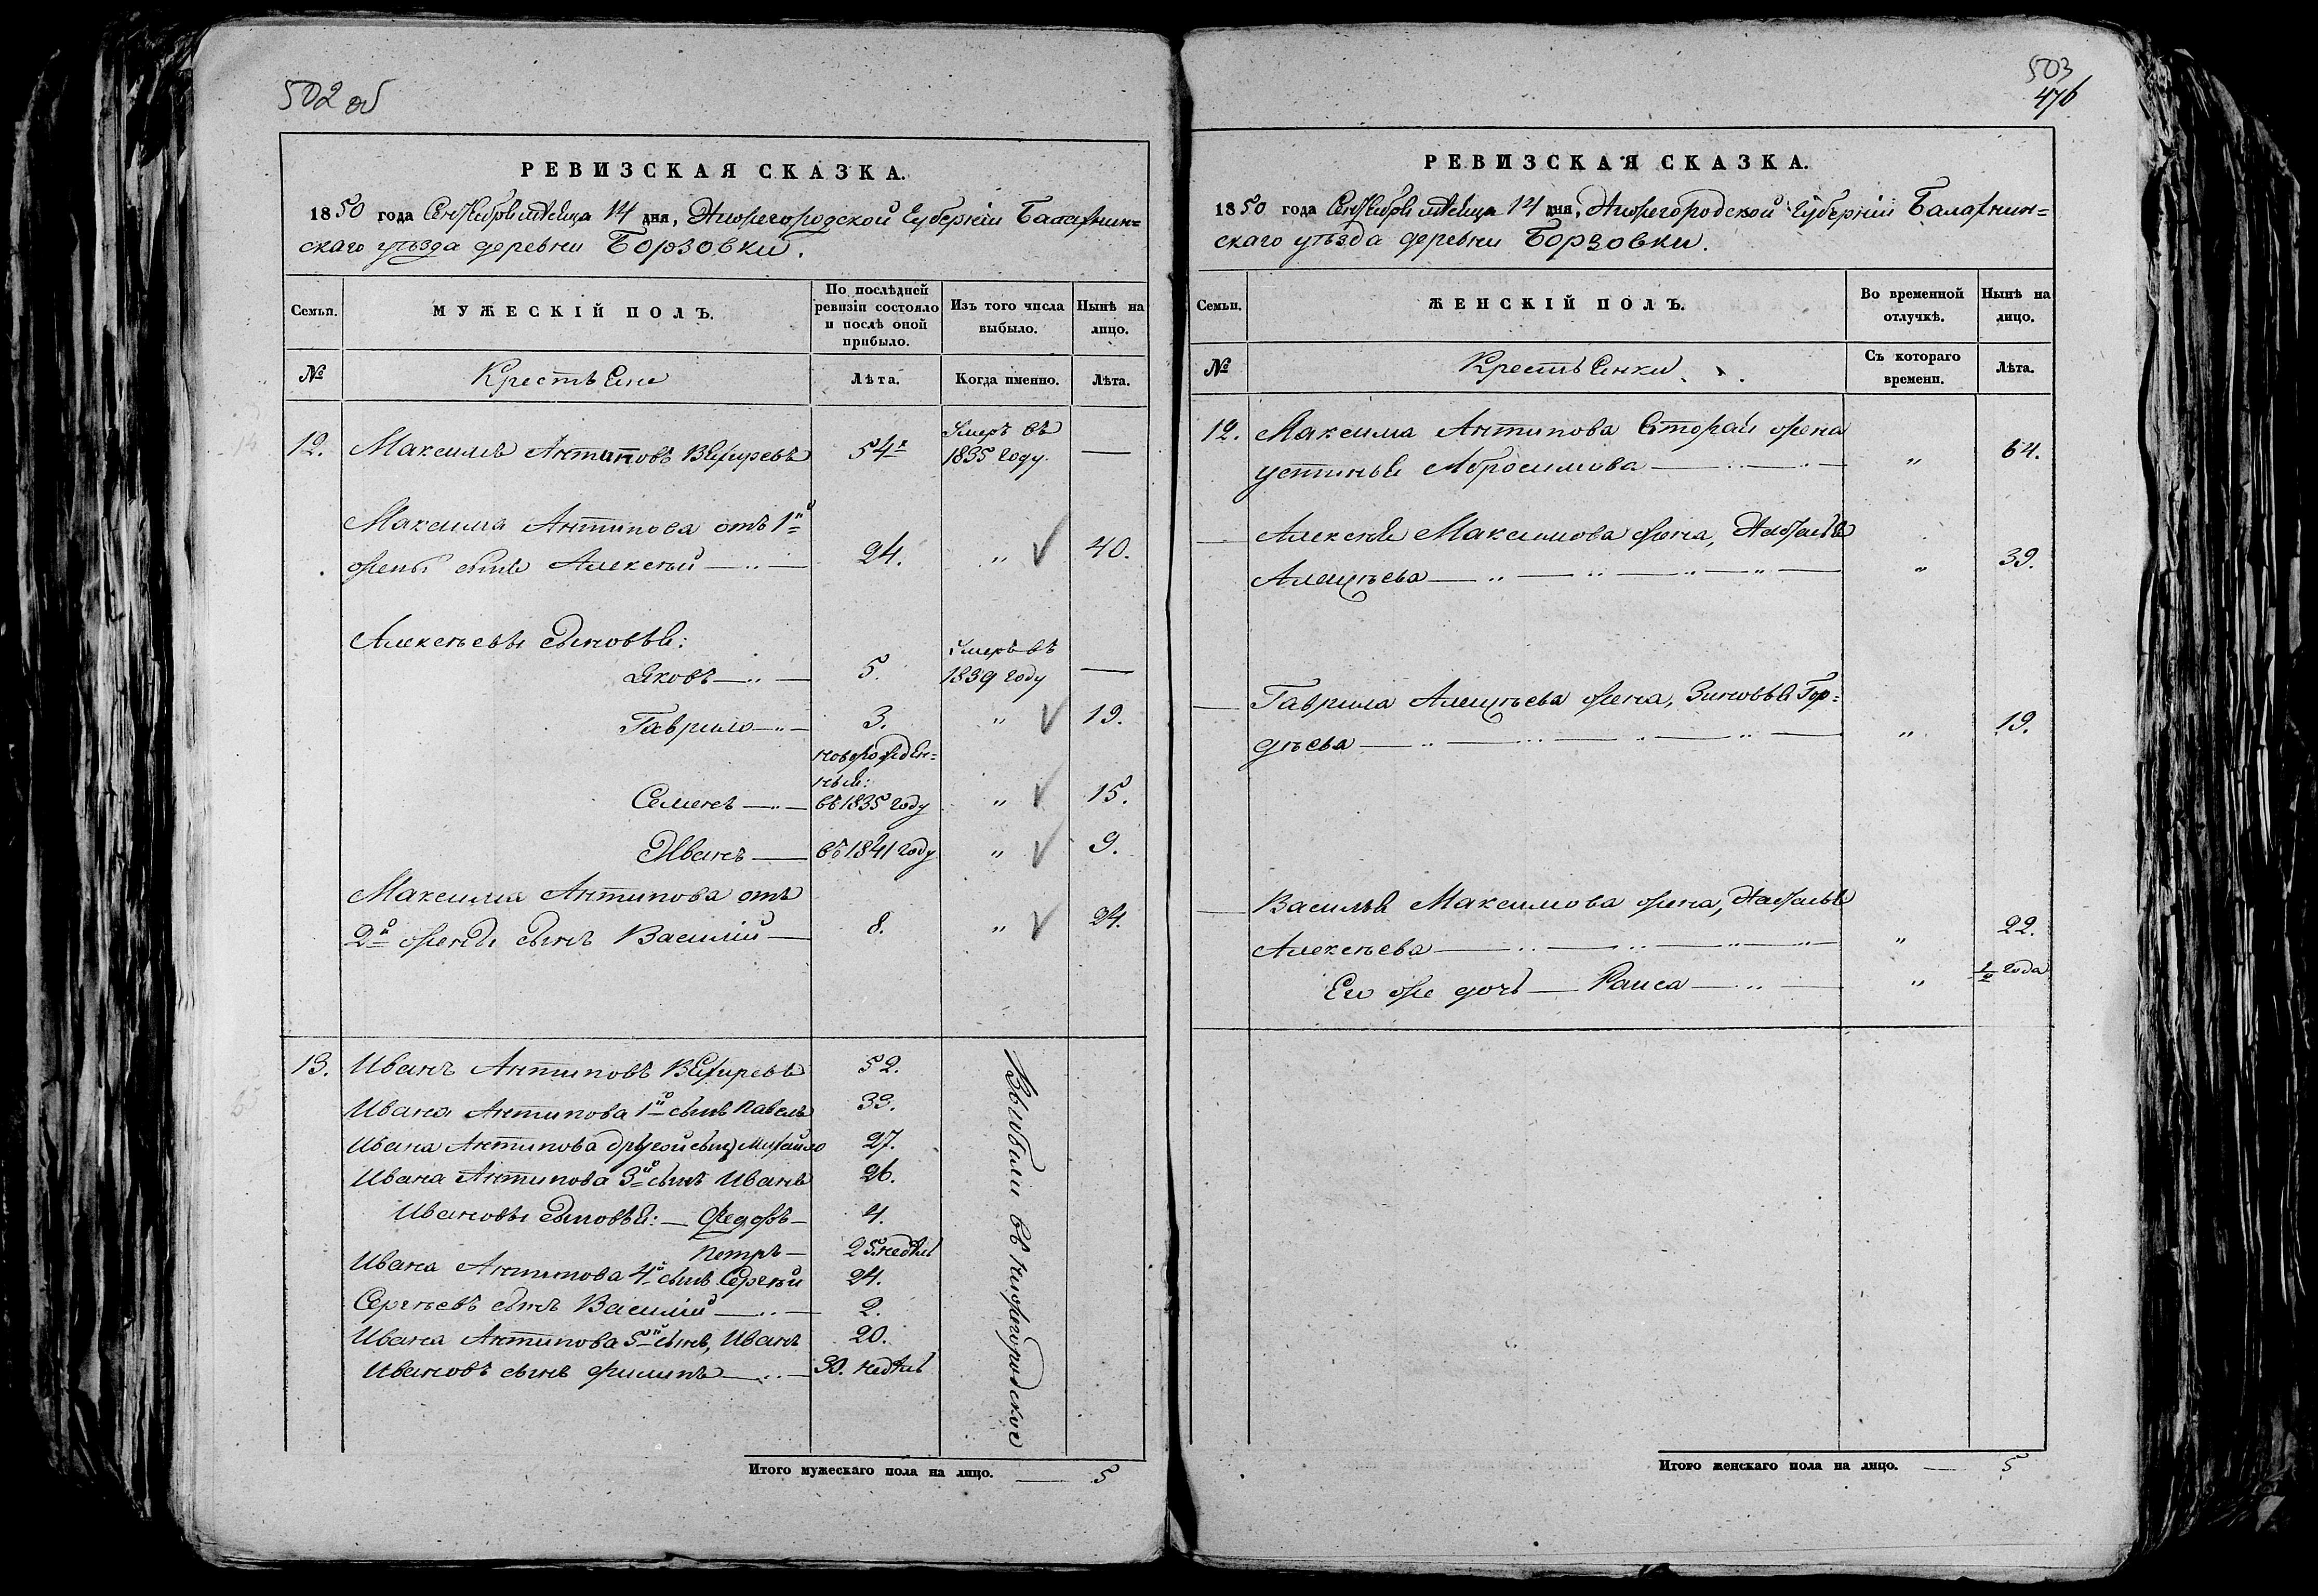 502 об
РЕВИЗСКАЯ СКАЗКА.
1850 года Сентября месяца 14 дня, Нижегородской Губерніи Балахнин=
скаго уѣзда деревни Борзовки.
Семьи.
МУЖЕСКІЙ ПОЛЪ.
По послѣдней
ревизіи состояло
и послѣ оной
прибыло.
Изъ того числа
выбыло.
Нынѣ на
лицо.
№
Крестьяне
Лѣта.
Когда именно.
Лѣта.
Умеръ въ
12. Максимъ Антиповъ 54 1835 году —
Максима Антипова отъ 1й
жены сынъ Алексѣй 24. „ 40.
Алексѣевы сыновья:
Умеръ въ
Яковъ 5. 1839 году —
Гаврило 3. „ 19.
новорожден=
ный:
Семенъ въ 1835 году „ 15.
Иванъ въ 1841 году „ 9.
Максима Антипова отъ
2й жены сынъ Василій 8. „ 24.
13. Иванъ Антиповъ 52.
Ивана Антипова 1й сынъ Павелъ 33.
Ивана Антипова другой сынъ Михайло 27.
Ивана Антипова 3й сынъ Иванъ 26.
Ивановы сыновья: Федоръ 4.
Петръ 25 недѣль
Ивана Антипова 4й сынъ Сергѣй 24.
Сергѣевъ сынъ Василій 2.
Ивана Антипова 5й сынъ, Иванъ 20.
Ивановъ сынъ Филипъ 30. недѣль
Выбыли въ Нижегородское
Итого мужескаго пола на лицо. — 5
503
476
РЕВИЗСКАЯ СКАЗКА.
1850 года Сентября месяца 14 дня, Нижегородской Губерніи Балахнин=
скаго уѣзда деревни Борзовки.
Семьи.
ЖЕНСКІЙ ПОЛЪ.
Во временной
отлучкѣ.
Нынѣ на
лицо.
№
Крестьянки
Съ котораго
времени.
Лѣта.
12. Максима Антипова вторая жена
Устинья Абросимова „ 64.
Алексѣя Максимова жена, Наталья
Алексѣева „ 39.
Гаврила Алексѣева жена, Зиновья Гор=
дѣева „ 19.
Василья Максимова жена, Наталья
Алексѣева „ 22.
Ея же дочь — Раиса „ ½ года
Итого женскаго пола на лицо. — 5